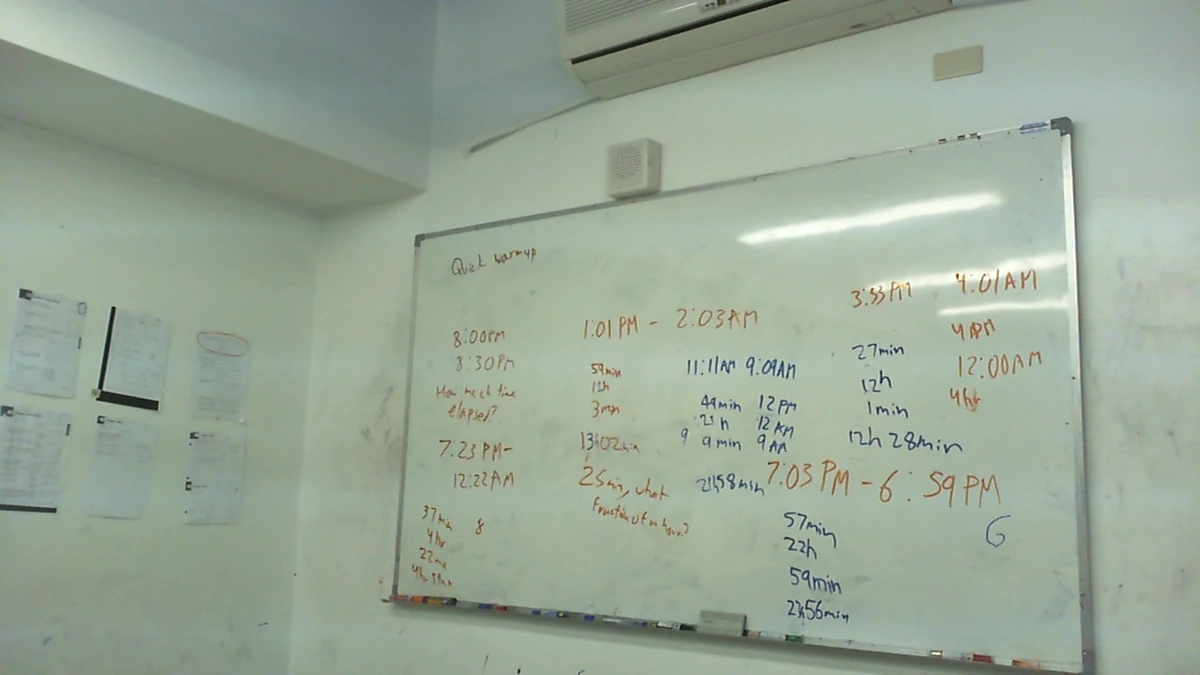 Quick warmup
8:00PM
8:30PM
How much time
elapsed?
7:23 PM-
12:22AM
37min
4hr
22min
8
1:01PM - 2:03AM
59min
12h
3min
13h02min
25min, what
fraction of an hour?
11:11AM 9:09AM
49min 12PM
21h 12AM
9 9min 9AM
21h58min
3:33PM 4:01AM
4PM
27min 12:00AM
12h 4hr
1min
12h 28min
7:03 PM - 6:59PM
57min
22h
59min
23h56min
6